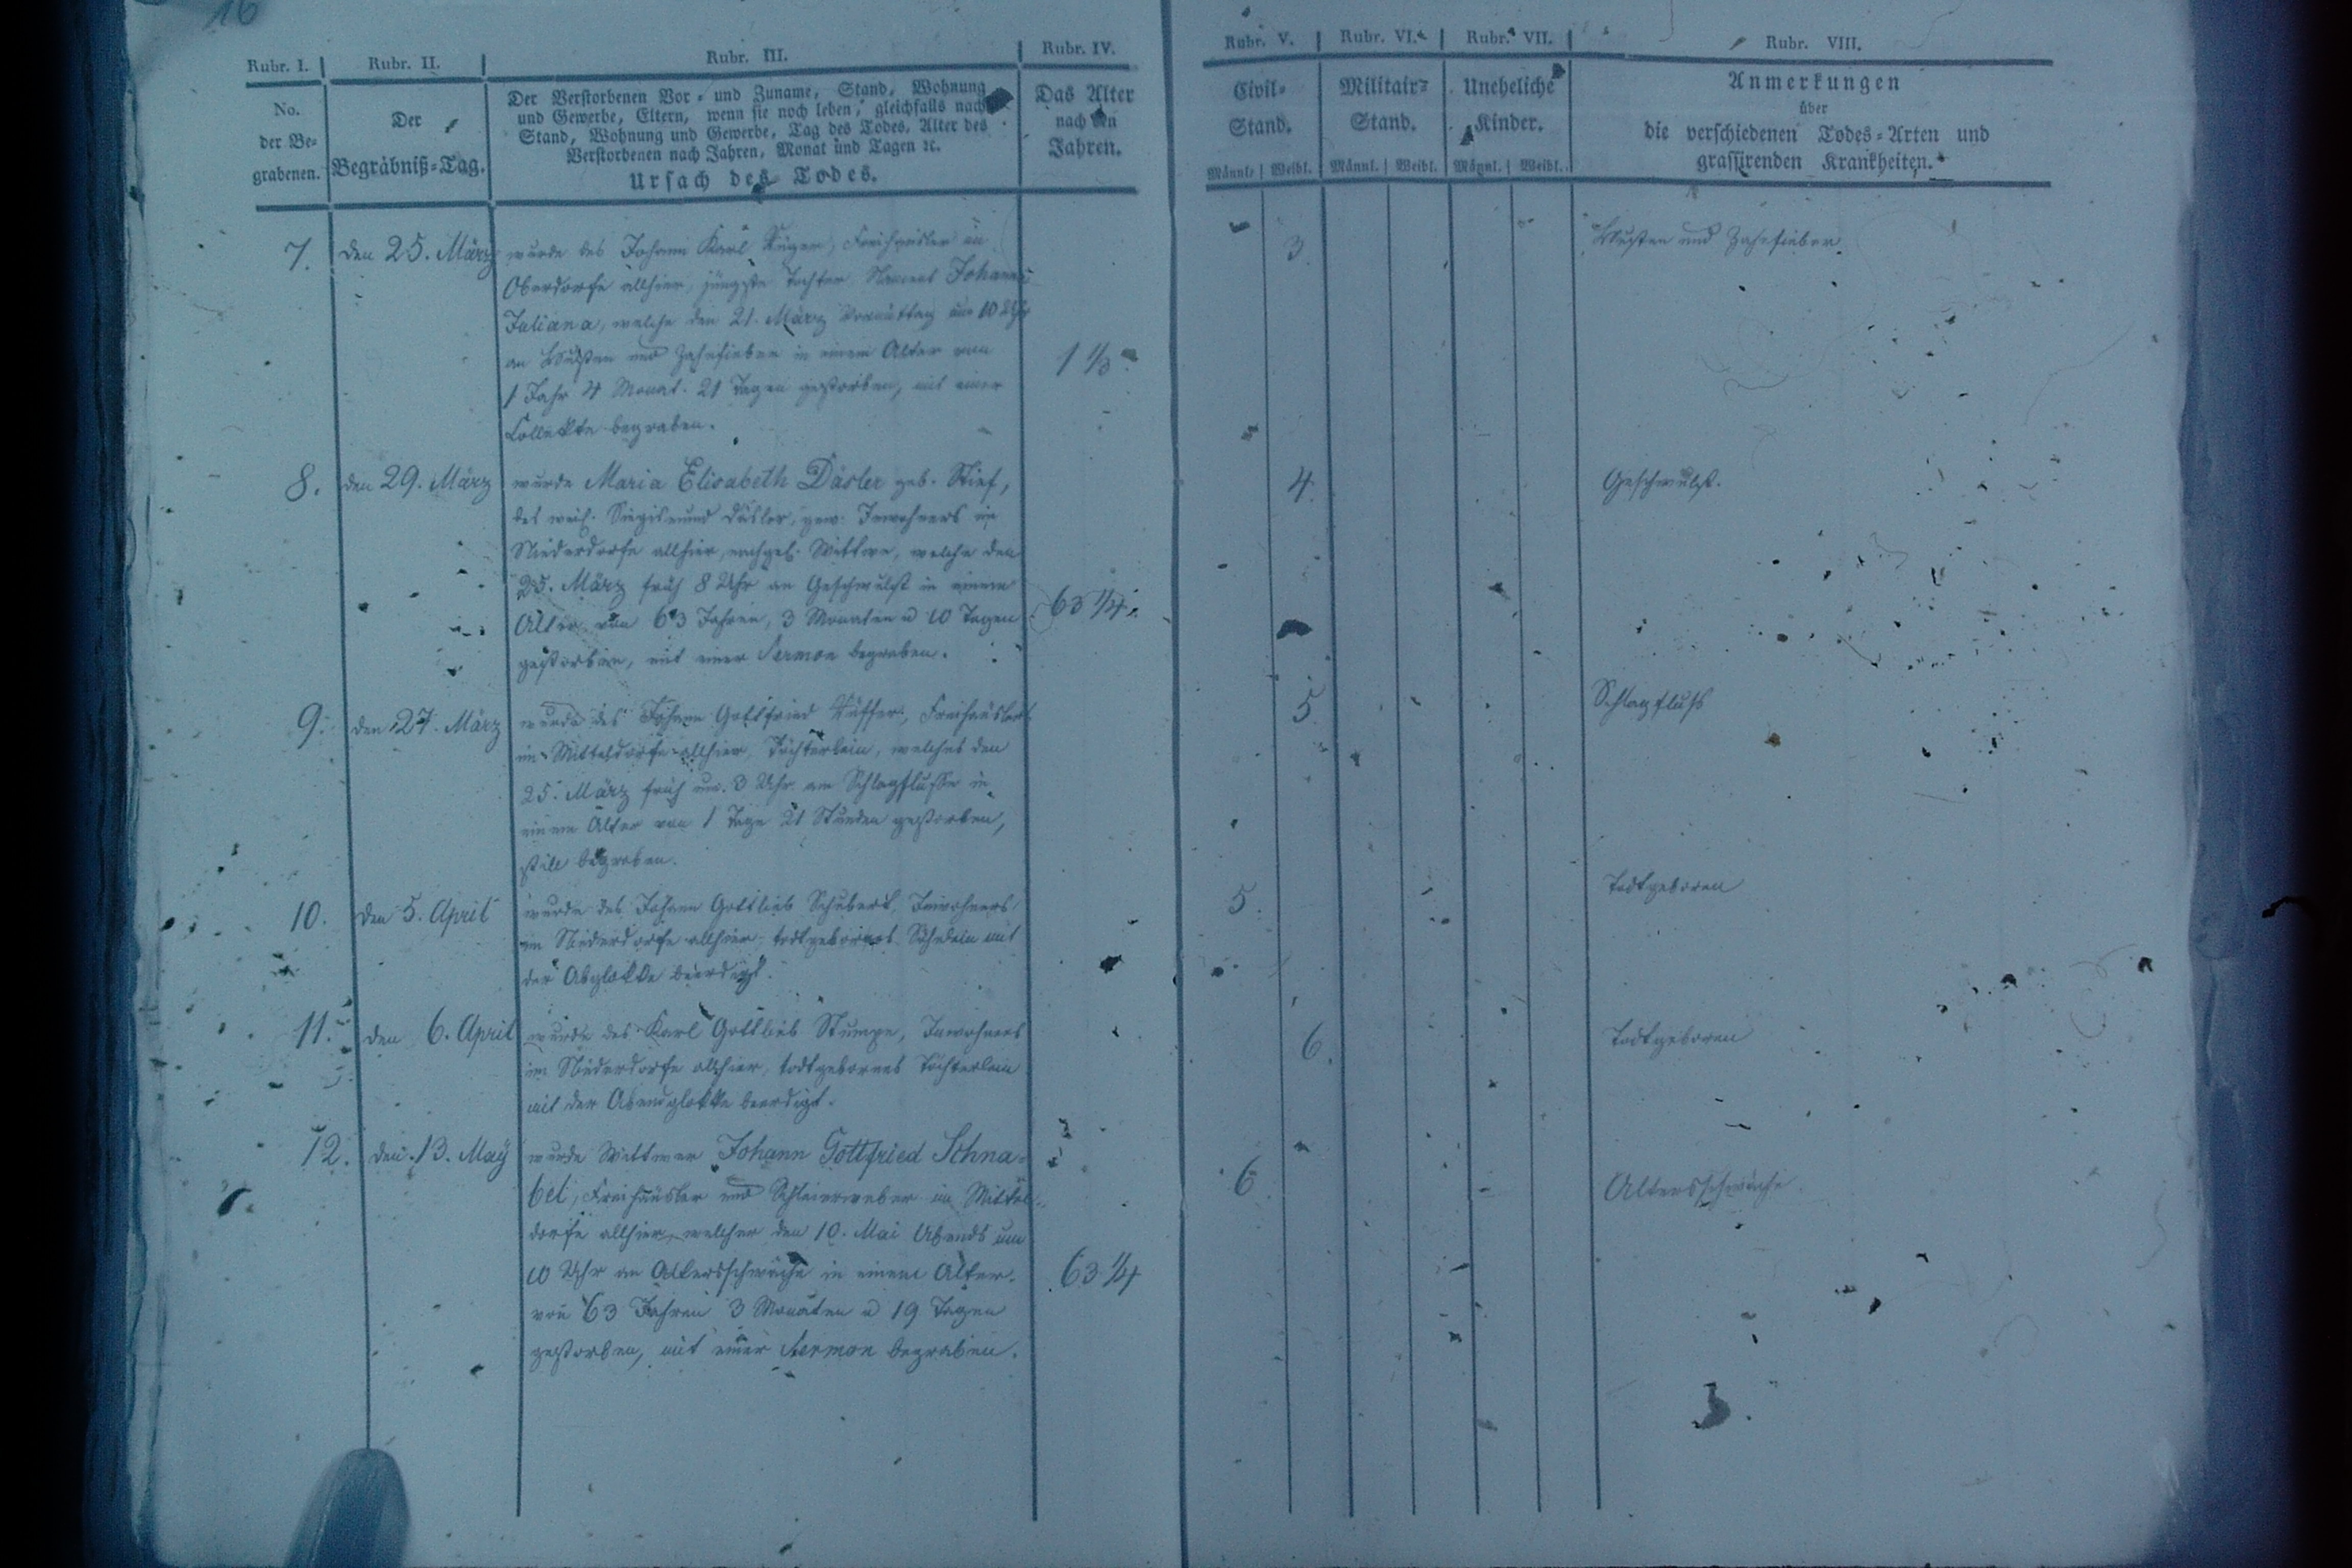 16
Rubr. I. Rubr. II. Rubr. III. Rubr. IV. Rubr. V. Rubr. VI. Rubr. VII. Rubr. VIII.
No. der Be-grabenen.
Der Begräbniß-Tag.
Der Verstorbenen Vor- und Zuname, Stand, Wohnung
und Gewerbe, Eltern, wenn sie noch leben, gleichfalls nach
Stand, Wohnung und Gewerbe, Tag des Todes, Alter des
Verstorbenen nach Jahren, Monat und Tagen ꝛc.
Ursach des Todes.
Das Alter
nach den
Jahren.
Civil-
Stand.
Männl. Weibl.
Militair-
Stand.
Männl. Weibl.
Uneheliche
Kinder.
Männl. Weibl.
Anmerkungen
über
die verschiedenen Todes-Arten und
grassirenden Krankheiten.
7. den 25. März wurde des Johann Karl Freihäusler im 3. Husten und Zahnfieber.
Oberdorfe allhier, jüngste Tochter Namens Johanne
Juliana, welche den 21. März Vormittag um 10 Uhr
an Husten und Zahnfieber in einem Alter von 1 1/3
1 Jahr 4 Monat. 21 Tagen gestorben, mit einer
Collekte begraben.
8. den 29. März wurde Maria Elisabeth Däsler geb. Stief, 4. Geschwulst.
des weil. Siegismund Däsler, gew. Inwohners im
Niederdorfe allhier, nachgel. Wittwe, welche den
25. März früh 8 Uhr an Geschwulst in einem
Alter von 63 Jahren, 3 Monaten u 10 Tagen 63 1/4
gestorben, mit einer Sermon begraben.
9. den 27. März wurde des Johann Gottfried Freihäuslers 5 Schlagfluß
im Mitteldorfe allhier, Töchterlein, welches den
25. März früh um 3 Uhr am Schlagflusse in
einem Alter von 1 Tage 21 Stunden gestorben,
still begraben.
10. den 5. April wurde des Johann Gottlieb Schubert, Inwohners 5. Todtgeboren
im Niederdorfe allhier, todtgebornes Söhnlein mit
der Abglokke beerdigt.
11. den 6. April wurde des Karl Gottlieb Stumpe, Inwohners 6. Todtgeboren
im Niederdorfe allhier, todtgebornes Töchterlein
mit der Abendglokke beerdigt.
12. den 13. Maÿ wurde Wittwer Johann Gottfried Schna- 6 Altersschwäche.
bel, Freihäusler und Schleierweber im Mittel-
dorfe allhier, welcher den 10. Mai Abends um
10 Uhr an Altersschwäche in einem Alter 63 1/4
von 63 Jahren 3 Monaten u 19 Tagen
gestorben, mit einer Sermon begraben.